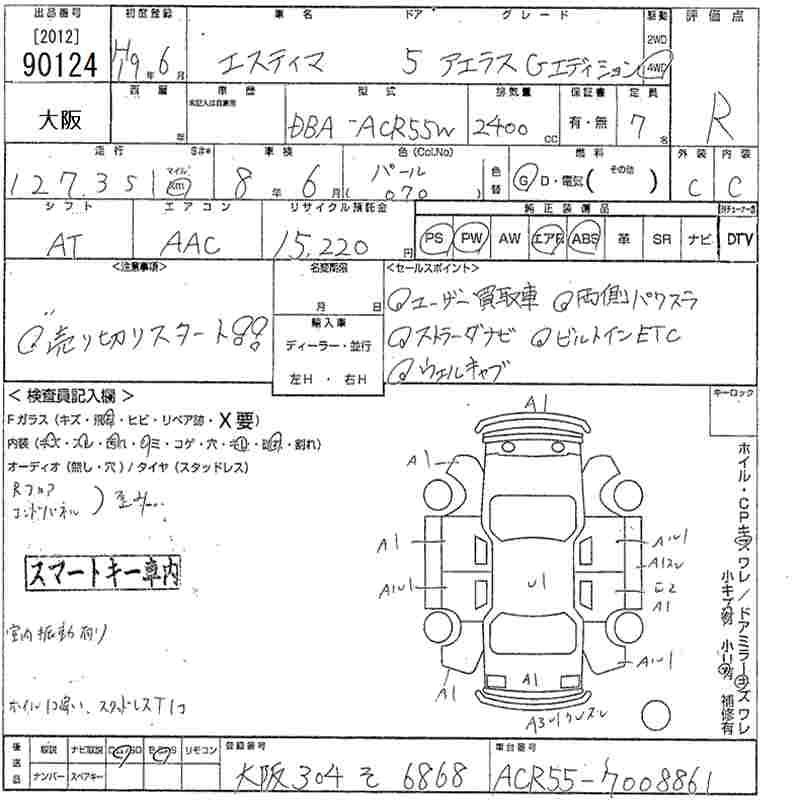 出品番号 初度登録 車名 ドア グレード 駆動 評価点
[2012]
90124 H19年6月 エスティマ 5 アエラス Gエディション 2WD 4WD R
大阪 年 車歴 型式 排気量 保証書 定員
名記入は自家用 DBA-ACR55W 2400cc 有・無 7名
走行 車検 色(Col.No) 色替 燃料 外装 内装
127.351 マイル km 8年6月 パール (070) G D・電気( その他 ) C C
シフト エアコン リサイクル預託金 純正装備品
AT AAC 15,220円 PS PW AW エアB ABS 革 SR ナビ DTV
<注意事項> 名変期限 <セールスポイント>
月 日 ユーザー買取車 両側パワスラ
売り切りスタート!! 輸入車 ストラーダナビ ビルトインETC
ディーラー・並行 ウェルキャブ
左H・右H
<検査員記入欄> キーロック
Fガラス(キズ・飛石・ヒビ・リペア跡・X要)
内装(キズ・スレ・汚れ・シミ・コゲ・穴・割れ)
オーディオ(無し・穴)/タイヤ(スタッドレス)
Rフロア
エンドパネル
スマートキー車内
室内振動有り
A1
A1
A1 U1 A1
A1 A1
A1 A1
ホイル・CPキズワレ/ドアミラーキズワレ
小キズ有 小凹有 補修有
後送品 取説 ナビ取説 リモコン 登録番号 車台番号
ナンバー スペアキー 大阪 304 そ 6868 ACR55-7008861